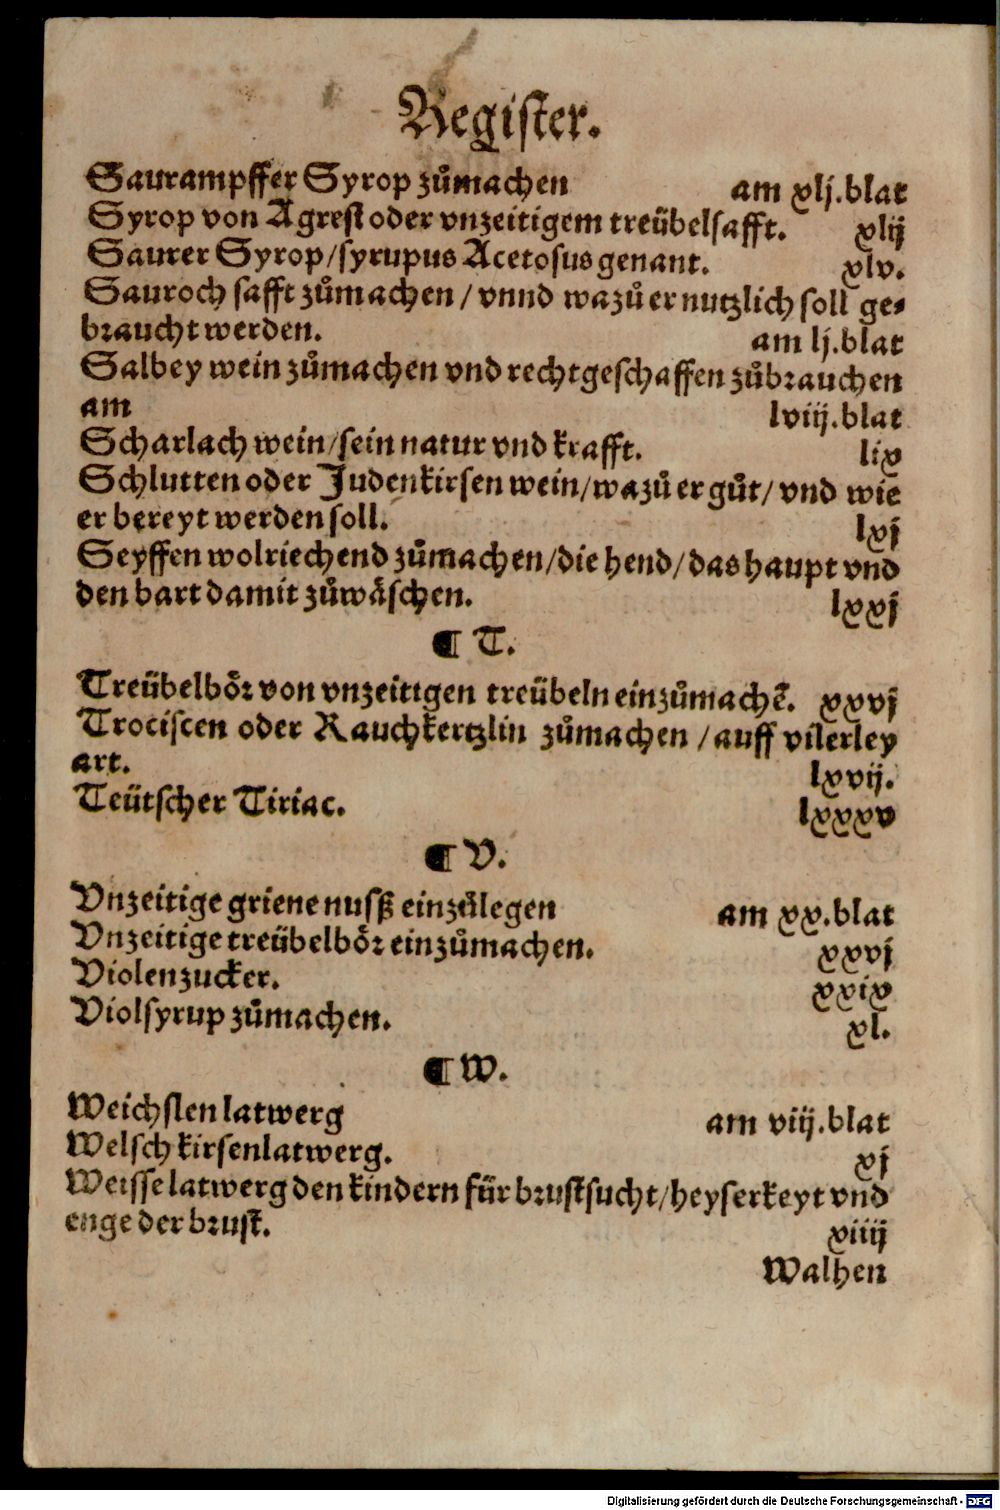 Register.
Saurampffer Syrop zůmachen am xlj.blat
Syrop von Agrest oder vnzeitigem treübelsafft. xlij
Saurer Syrop/syrupus Acetosus genant. xlv.
Sauroch safft zůmachen / vnnd wazů er nutzlich soll ge-
braucht werden. am lj.blat
Salbey wein zůmachen vnd rechtgeschaffen zůbrauchen
am lviij.blat
Scharlach wein/sein natur vnd krafft. lix
Schlutten oder Judenkirsen wein/wazů er gůt/ vnd wie
er bereyt werden soll. lxj
Seyffen wolriechend zůmachen/die hend/das haupt vnd
den bart damit zůwäschen. lxxj
¶ T.
Treübelbör von vnzeitigen treübeln einzůmachẽ. xxvj
Trociscen oder Rauchkertzlin zůmachen /auff vilerley
art. lxvij.
Teütscher Tiriac. lxxxv
¶ V.
Vnzeitige griene nusß einzůlegen am xx.blat
Vnzeitige treübelbör einzůmachen. xxvj
Violenzucker. xxix
Violsyrup zůmachen. xl.
¶ W.
Weichslen latwerg am viij.blat
Welsch kirsenlatwerg. xj
Weisse latwerg den kindern für brustsucht/heyserkeyt vnd
enge der brust. xiiij
Walhen
Digitalisierung gefördert durch die Deutsche Forschungsgemeinschaft - DFG